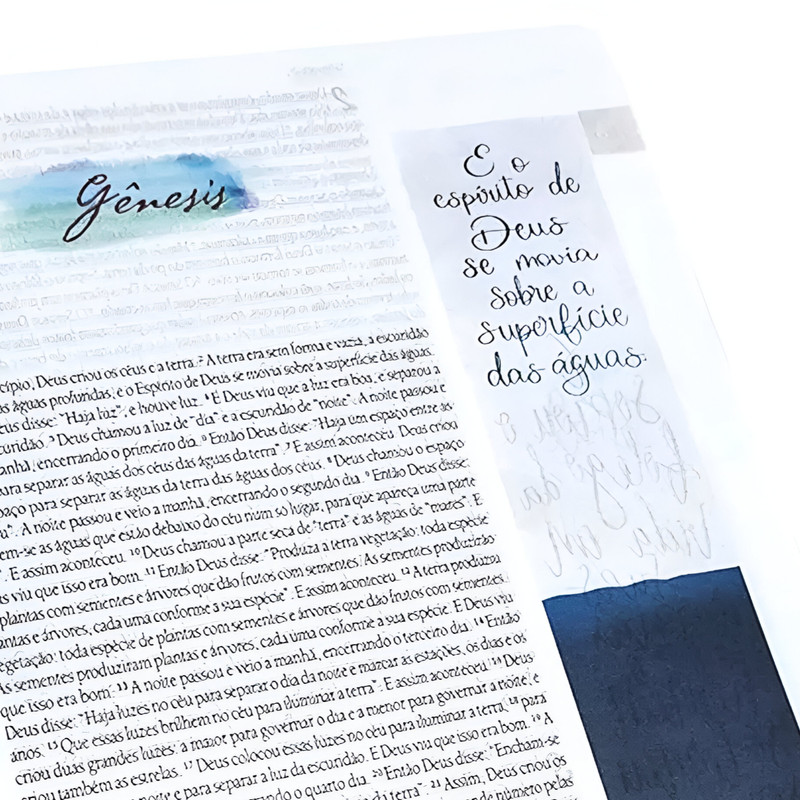 Gênesis
cípio, Deus criou os céus e a terra. ² A terra era sem forma e vazia, a escuridão
as águas profundas, e o Espírito de Deus se movia sobre a superfície das águas.
eus disse: "Haja luz", e houve luz. ⁴ E Deus viu que a luz era boa, e separou a
curidão. ⁵ Deus chamou a luz de "dia" e a escuridão de "noite". A noite passou e
anhã, encerrando o primeiro dia. ⁶ Então Deus disse: "Haja um espaço entre as
ara separar as águas dos céus das águas da terra". ⁷ E assim aconteceu. Deus criou
paço para separar as águas da terra das águas dos céus. ⁸ Deus chamou o espaço
u". A noite passou e veio a manhã, encerrando o segundo dia. ⁹ Então Deus disse:
em-se as águas que estão debaixo do céu num só lugar, para que apareça uma parte
". E assim aconteceu. ¹⁰ Deus chamou a parte seca de "terra" e as águas de "mares". E
s viu que isso era bom. ¹¹ Então Deus disse: "Produza a terra vegetação: toda espécie
plantas com sementes e árvores que dão frutos com sementes. As sementes produzirão
antas e árvores, cada uma conforme a sua espécie". E assim aconteceu. ¹² A terra produziu
egetação: toda espécie de plantas com sementes e árvores que dão frutos com sementes.
As sementes produziram plantas e árvores, cada uma conforme a sua espécie. E Deus viu
que isso era bom. ¹³ A noite passou e veio a manhã, encerrando o terceiro dia. ¹⁴ Então
Deus disse: "Haja luzes no céu para separar o dia da noite e marcar as estações, os dias e os
anos. ¹⁵ Que essas luzes brilhem no céu para iluminar a terra". E assim aconteceu. ¹⁶ Deus
criou duas grandes luzes: a maior para governar o dia e a menor para governar a noite, e
criou também as estrelas. ¹⁷ Deus colocou essas luzes no céu para iluminar a terra, ¹⁸ para
noite e para separar a luz da escuridão. E Deus viu que isso era bom. ¹⁹ A
o quarto dia. ²⁰ Então Deus disse: "Encham-se
da terra". ²¹ Assim, Deus criou os
E o
espírito de
Deus
se movia
sobre a
superfície
das águas.